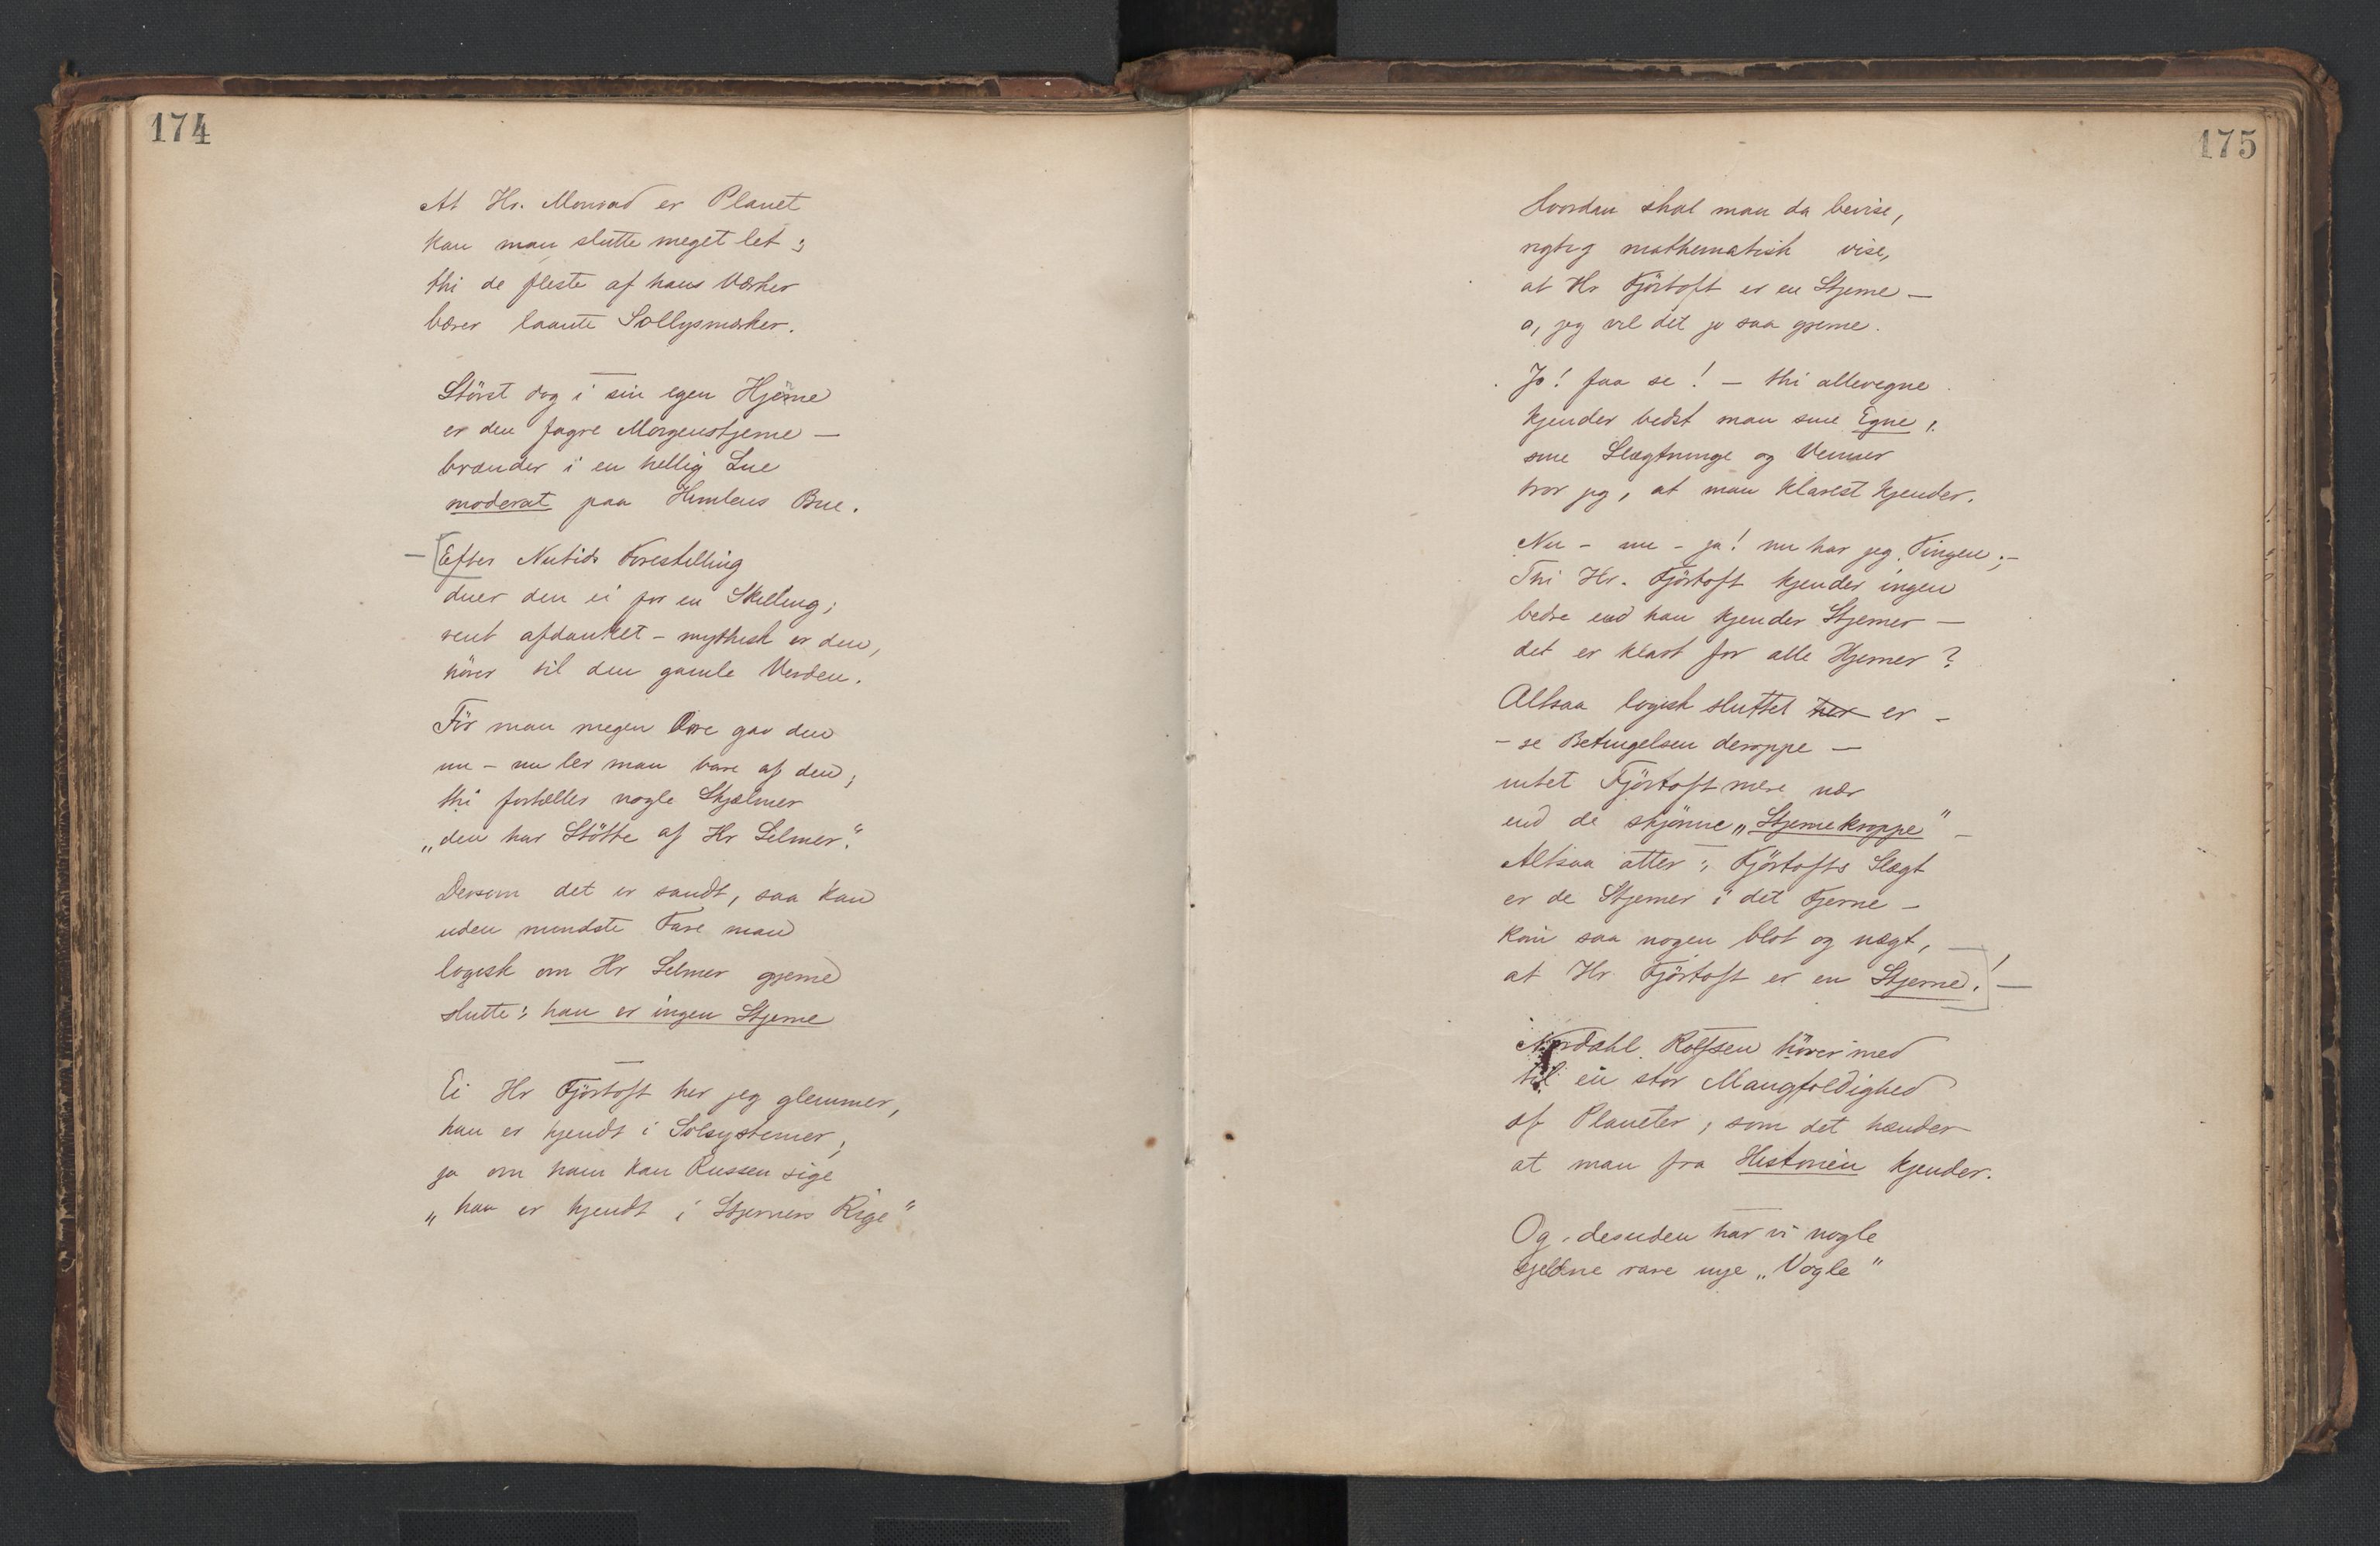 174
At Hr. Monrad er Planet
kan man slutte meget let;
thi de fleste af hans Værker
bærer laante Sollysmærker.
Störst dog i sin egen Hjerne
er den fagre Morgenstjerne —
brænder i en hellig Lue
moderat paa Himlens Bue.
— [Efter Nutids Forestilling
duer den ei for en Skilling;
rent afdanket – mythisk er den,
hörer til den gamle Verden.
För man megen Ære gav den
nu – nu ler man bare af den;
thi fortæller nogle Skjælmer
„den har Stötte af Hr Selmer".
Dersom det er sandt, saa kan
uden mindste Fare man
logisk om Hr Selmer gjerne
slutte: han er ingen Stjerne
Ei Hr Fjörtoft her jeg glemmer,
han er kjendt i Solsystemer,
ja om ham kan Russen sige
„han er kjendt i Stjerners Rige"
175
Hvordan skal man da bevise,
rigtig mathematisk vise,
at Hr Fjörtoft er en Stjerne —
o, jeg vil det jo saa gjerne.
Jo! faa se! — thi allevegne
kjender bedst man sine Egne,
sine Slægtninge og Venner
tror jeg, at man klarest kjender.
Nu – nu – ja! nu har jeg Tingen; –
Thi Hr. Fjörtoft kjender ingen
bedre end han kjender Stjerner —
det er klart for alle Hjerner?
Altsaa logisk sluttet her er –
– se Betingelsen deroppe —
intet Fjörtoft mere nær
end de skjønne „Stjernekroppe" –
Altsaa atter: Fjörtofts Slægt
er de Stjerner i det Fjerne –
Kom saa nogen blot og nægt, —
at Hr. Fjörtoft er en Stjerne.] ! —
Nordahl Rolfsen hörer med
til en stor Mangfoldighed
af Planeter, som det hænder
at man fra Historien kjender.
Og desuden har vi nogle
sjeldne rare nye „Vogle"